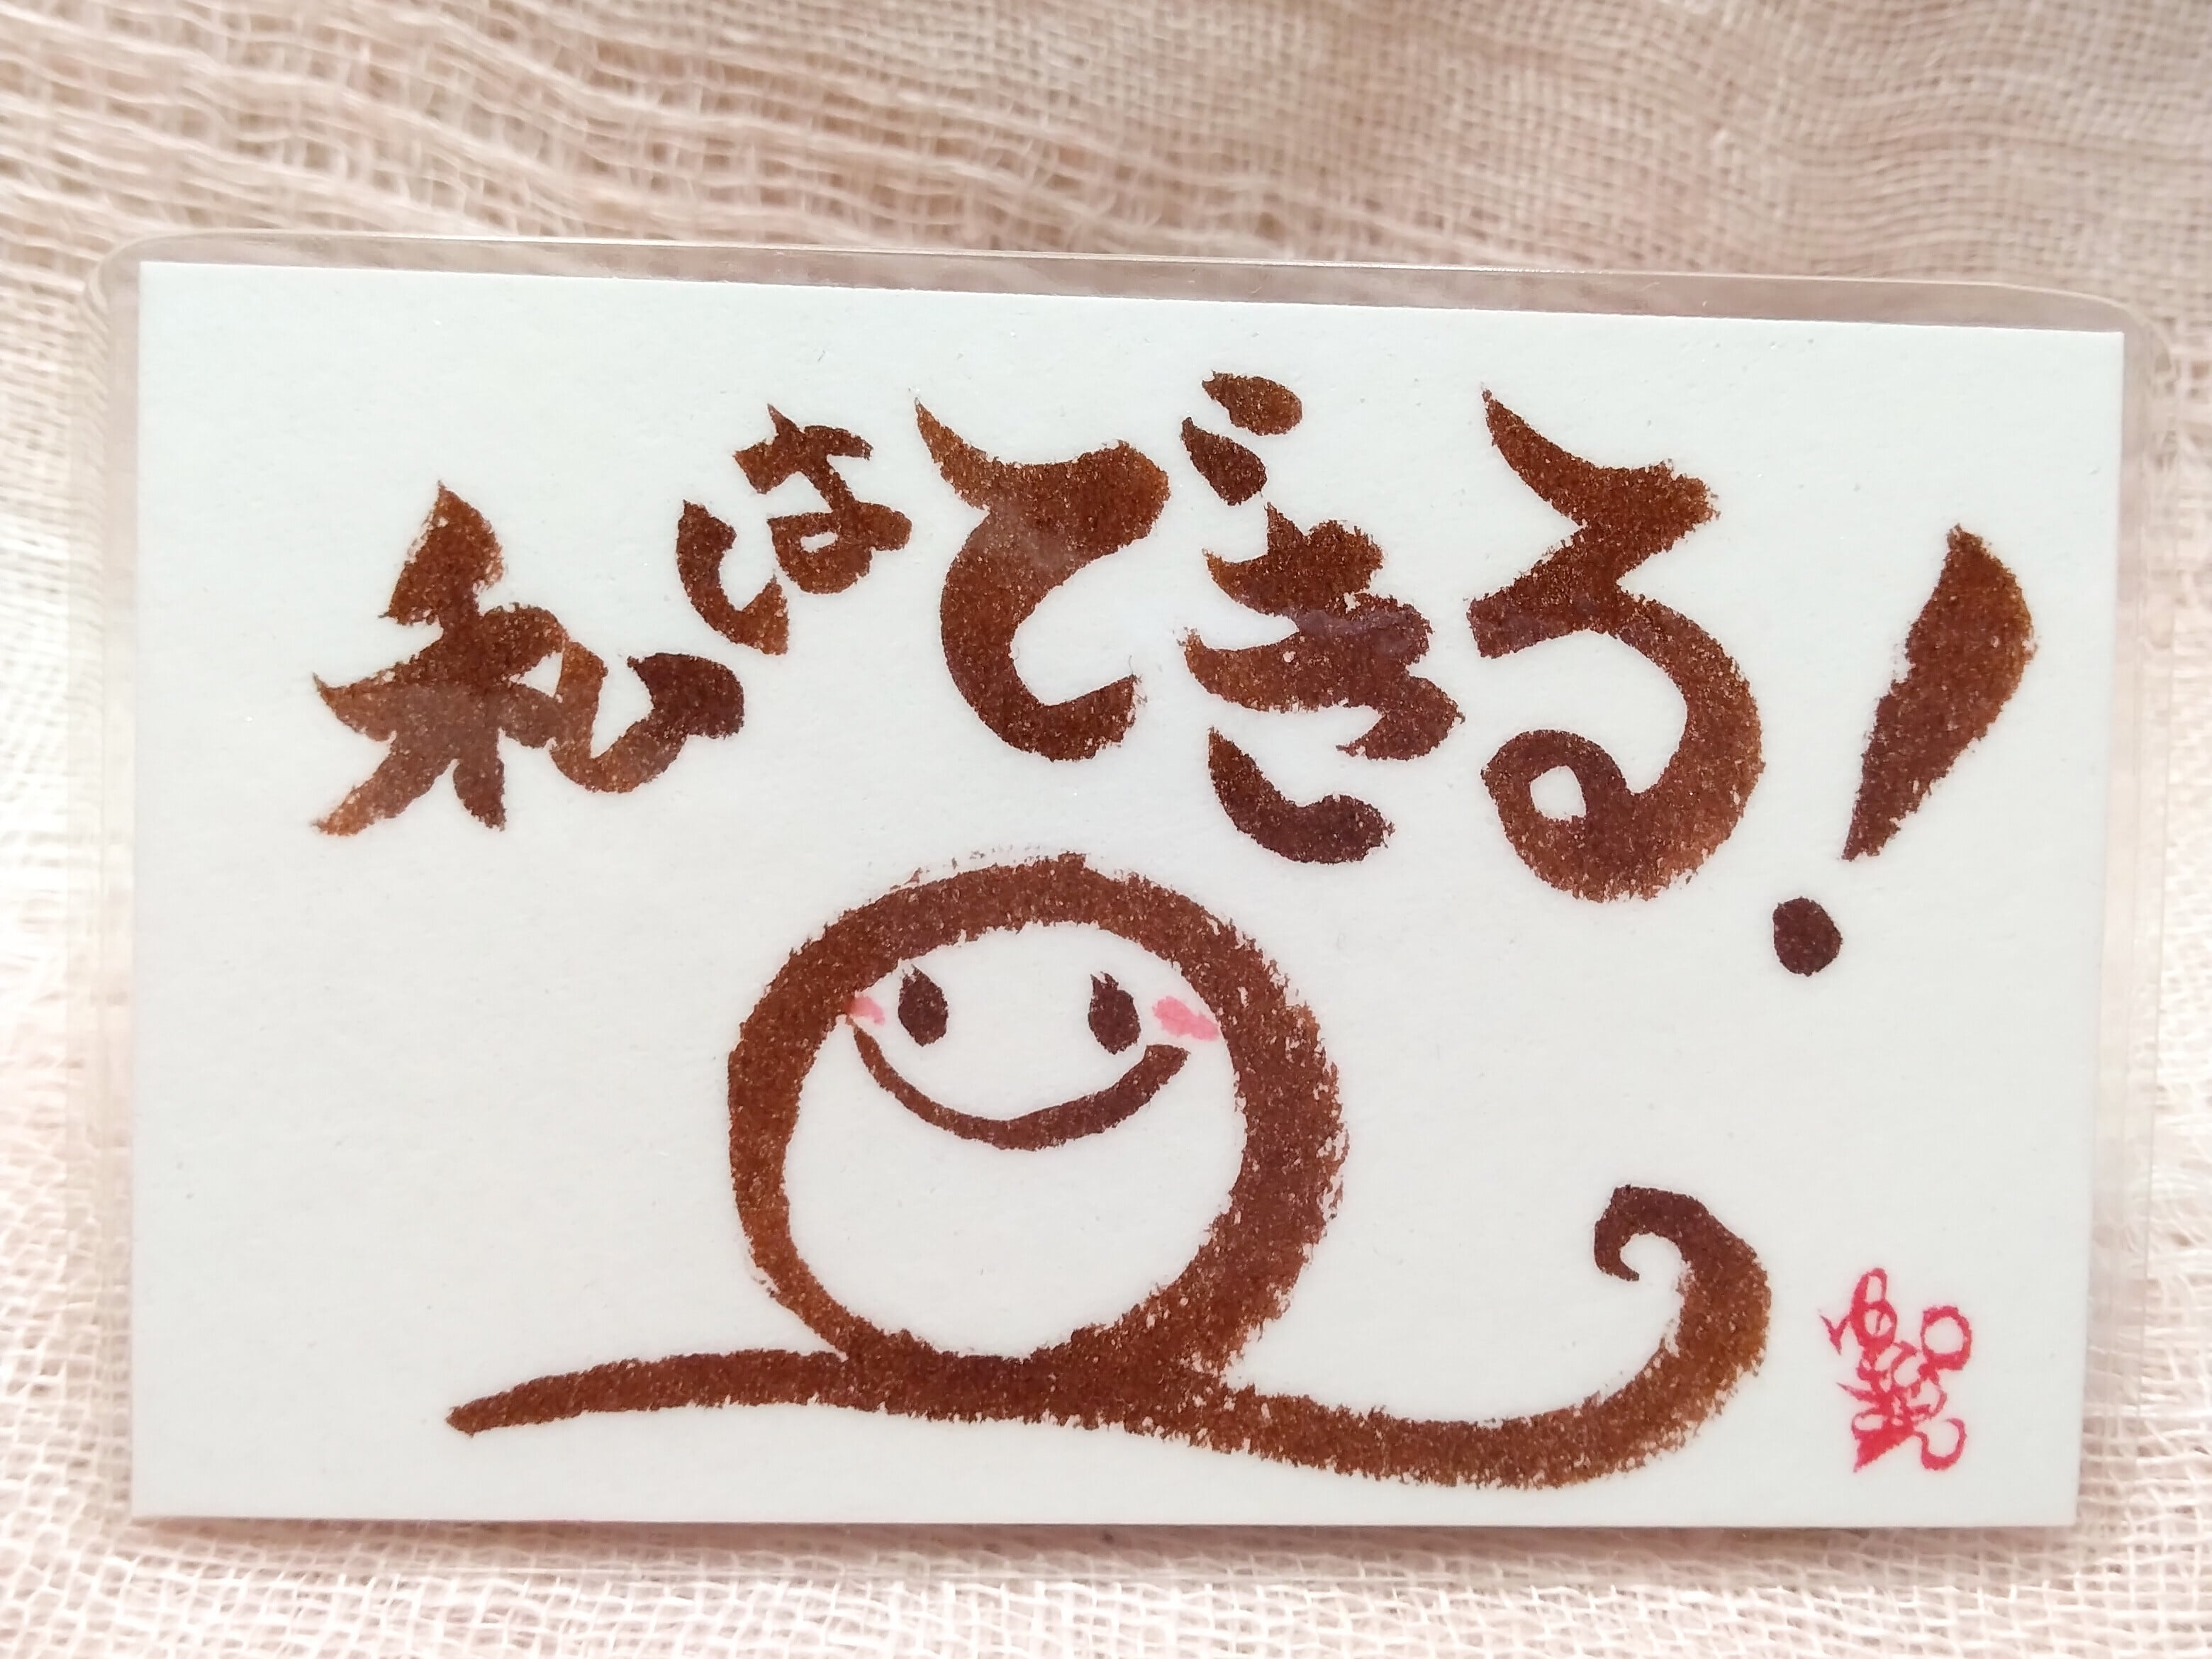 私はできる!